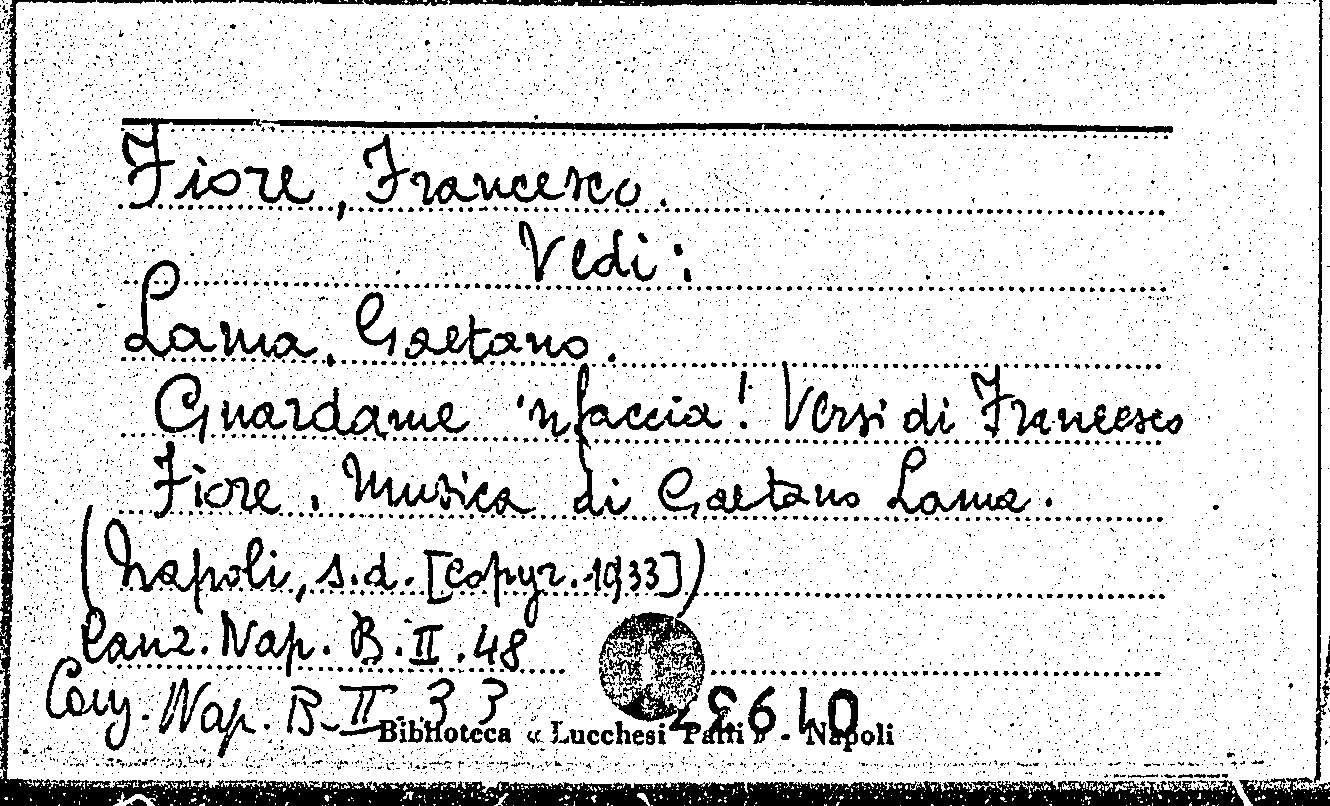 Fiore, Francesco.
Vedi:
Lama, Gaetano.
Guardame 'nfaccia! Versi di Francesco
Fiore. Musica di Gaetano Lama.
(Napoli, s.d. [copyr. 1933])
Canz. Nap. B. II. 48
Canz. Nap. B-II. 33
Biblioteca « Lucchesi Palli » - Napoli